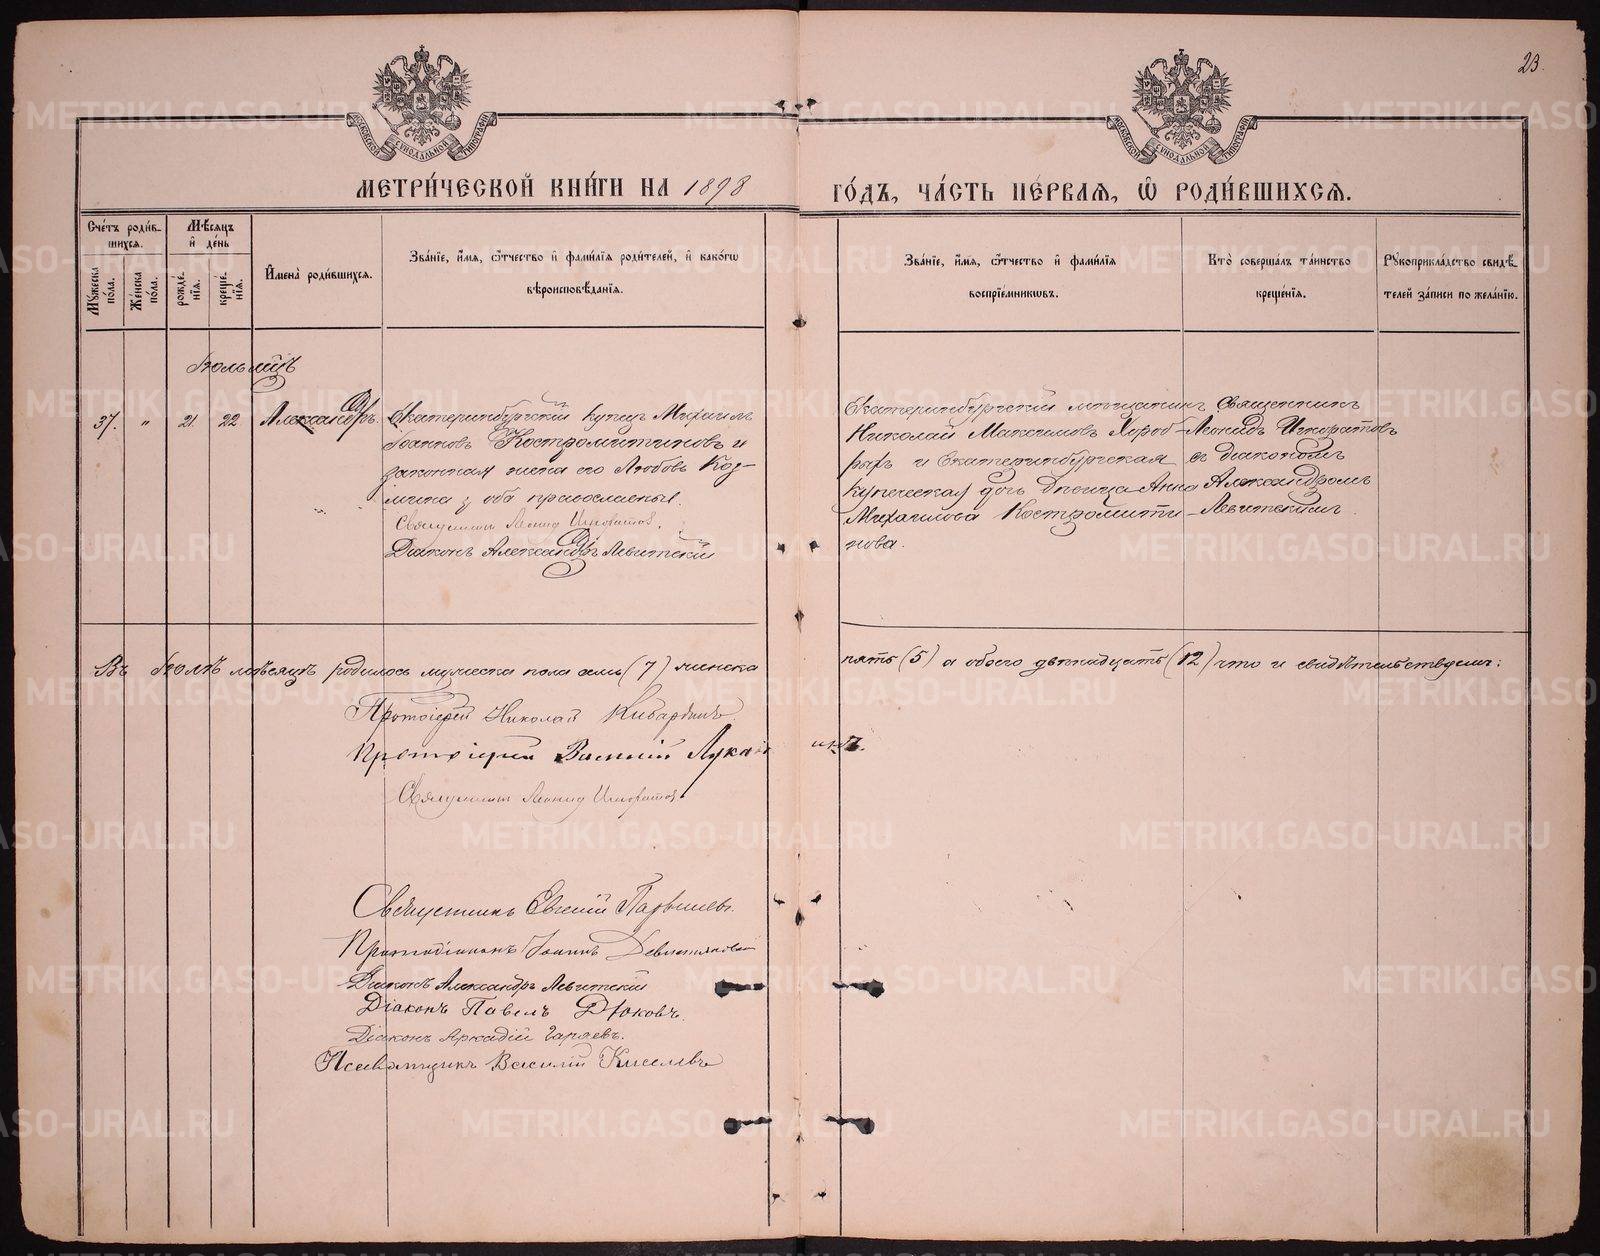 23.
МОСКОВСКОЙ СѴНОДАЛЬНОЙ ТИПОГРАФІИ
МОСКОВСКОЙ СѴНОДАЛЬНОЙ ТИПОГРАФІИ
МЕТРИ́ЧЕСКОЙ КНИ́ГИ НА 1898 ГО́ДЪ, ЧА́СТЬ ПЕ́РВАЯ, Ѡ҆ РОДИ́ВШИХСЯ.
Сче́тъ роди́в-
шихся.
Мѣ́сяцъ
и҆ де́нь
Му́жеска по́ла.
Же́нска по́ла.
рожде́нїя.
креще́нїя.
И҆мена̀ роди́вшихся.
Зва́нїе, и҆́мя, ѻ҆́тчество и҆ фами́лїя роди́телей, и҆ како́гѡ
вѣроисповѣ́данїя.
Зва́нїе, и҆́мя, ѻ҆́тчество и҆ фами́лїя
воспрїе́мникѡвъ.
Кто̀ соверша́лъ та́инство
креще́нїя.
Рꙋкоприкла́дство свидѣ́-
телей за́писи по жела́нїю.
Іюль мѣцъ
37. " 21. 22 Александръ.
Екатеринбургскій купецъ Михаилъ
Іоанновъ Костромитиновъ и
законная жена его Любовь Коз-
мина, оба православные.
Священникъ Леонид Игноратов.
Діаконъ Александръ Левитскій
Екатеринбургскій мѣщанинъ
Николай Максимовъ Короб-
рыхъ и Екатеринбургская
купеческая дочь дѣвица Анна
Михаилова Костромити-
нова.
Священникъ
Леонидъ Игноратовъ
съ діакономъ
Александромъ
Левитскимъ.
Въ Іюлѣ мѣсяцѣ родилось мужеска пола семь (7) женска пять (5) а обоего двѣнадцать (12) что и свидѣтельствуемъ:
Протоіерей Николай Кибардинъ.
Протоіерей Василій Лукан инъ.
Священникъ Леонид Игноратов.
Священникъ Евгеній
Протодіаконъ Іоаннъ
Діаконъ Александръ Левитскій
Діаконъ Павелъ Дюковъ.
Діаконъ Аркадій Гаряевъ.
Псаломщикъ Василій Киселевъ
METRIKI.GASO-URAL.RU